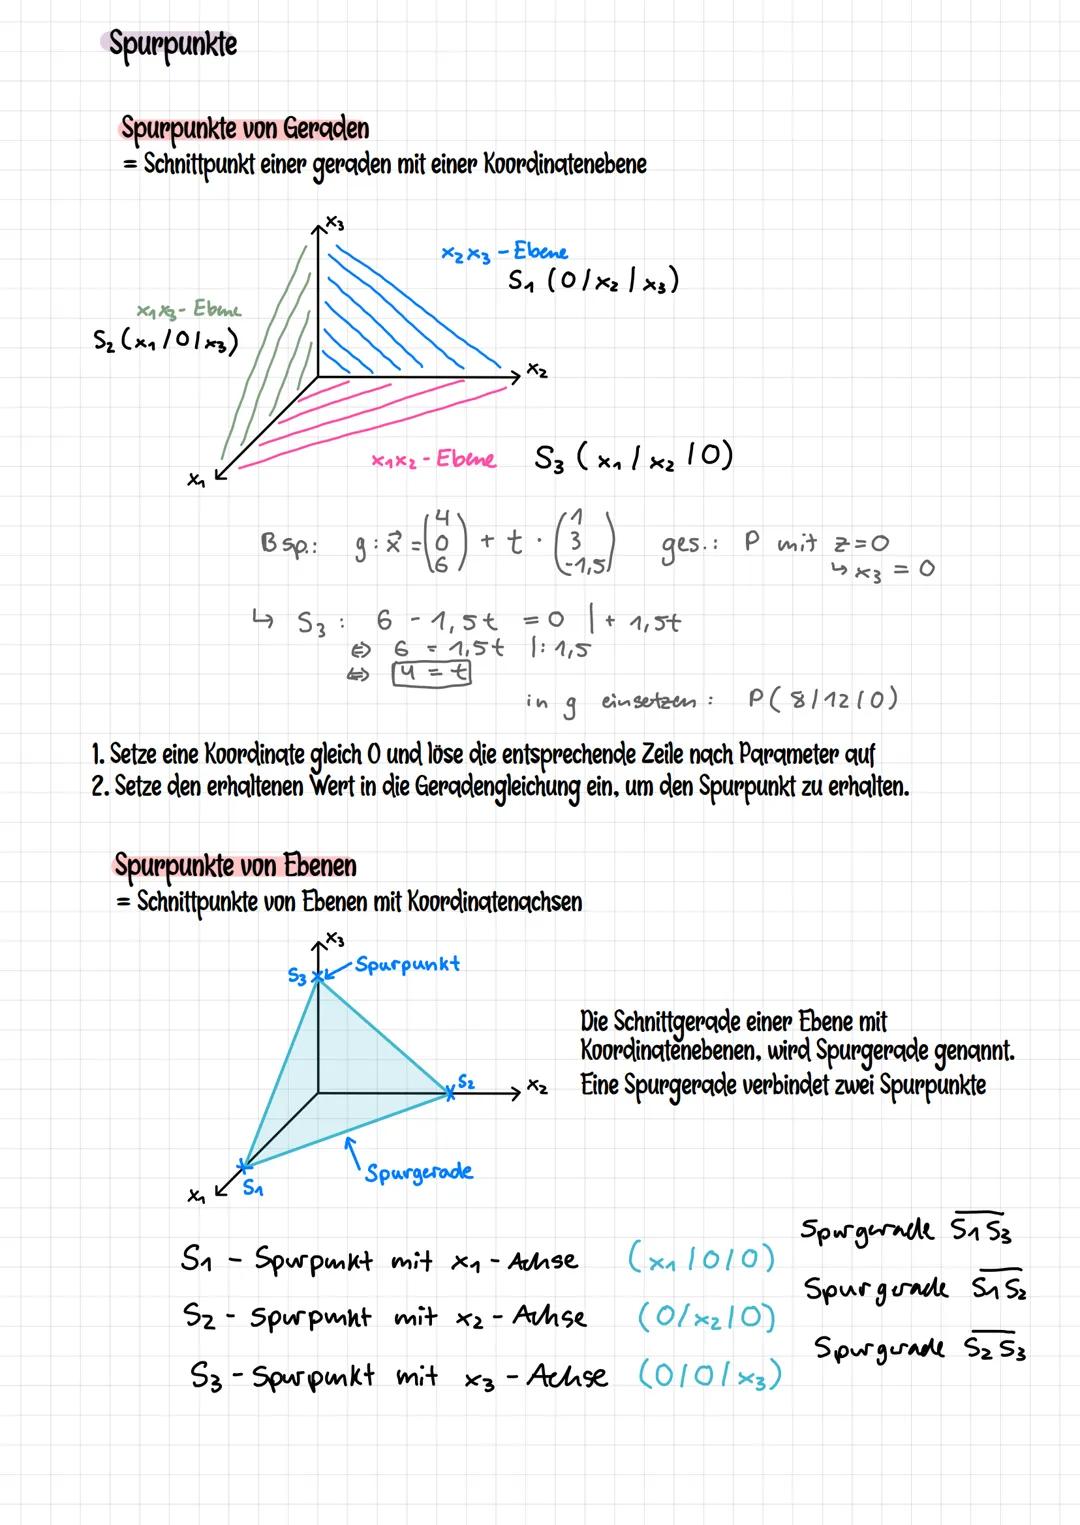 Spurpunkte
Spurpunkte von Geraden
= Schnittpunkt einer geraden mit einer Koordinatenebene
x₃
x₂x₃ - Ebene
S₁ (0/x₂/x₃)
x₁x₃ - Ebene
S₂ (x₁/0/x₃)
x₂
x₁x₂ - Ebene S₃ (x₁/x₂/0)
x₁
Bsp.: g: x⃗ = (4 0 6) + t · (1 3 -1,5) ges.: P mit z=0
↳ x₃ = 0
↳ S₃: 6 - 1,5t = 0 | + 1,5t
⇔ 6 = 1,5t |: 1,5
⇔ 4 = t
in g einsetzen: P(8/12/0)
1. Setze eine Koordinate gleich 0 und löse die entsprechende Zeile nach Parameter auf
2. Setze den erhaltenen Wert in die Geradengleichung ein, um den Spurpunkt zu erhalten.
Spurpunkte von Ebenen
= Schnittpunkte von Ebenen mit Koordinatenachsen
x₃
S₃ Spurpunkt
Die Schnittgerade einer Ebene mit
Koordinatenebenen, wird Spurgerade genannt.
Eine Spurgerade verbindet zwei Spurpunkte
S₂ x₂
Spurgerade
x₁ S₁
Spurgerade S₁S₃
S₁ - Spurpunkt mit x₁ - Achse (x₁/0/0)
Spurgerade S₁S₂
S₂ - Spurpunkt mit x₂ - Achse (0/x₂/0)
Spurgerade S₂S₃
S₃ - Spurpunkt mit x₃ - Achse (0/0/x₃)